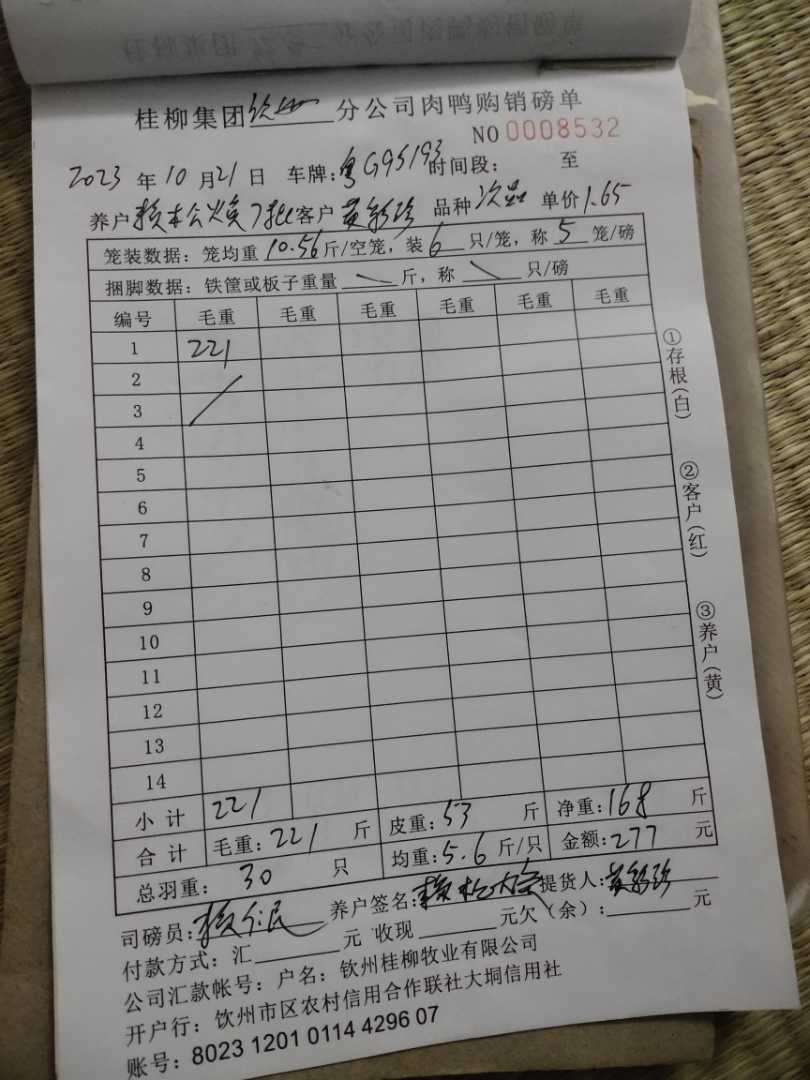 桂柳集团钦州分公司肉鸭购销磅单
NO 0008532
2023 年 10 月 21 日 车牌: 粤G95193 时间段: 至
养户 客户 黄 珍 品种 次品 单价 1.65
笼装数据: 笼均重 10.56 斤/空笼, 装 6 只/笼, 称 5 笼/磅
捆脚数据: 铁筐或板子重量 \ 斤, 称 \ 只/磅
编号 毛重 毛重 毛重 毛重 毛重 毛重
1 221
2
3
4
5
6
7
8
9
10
11
12
13
14
小计 221
合计 毛重: 221 斤 皮重: 53 斤 净重: 168 斤
总羽重: 30 只 均重: 5.6 斤/只 金额: 277 元
司磅员: 养户签名: 提货人: 黄 珍
付款方式: 汇 元 收现 元欠(余): 元
公司汇款帐号: 户名: 钦州桂柳牧业有限公司
开户行: 钦州市区农村信用合作联社大垌信用社
账号: 8023 1201 0114 4296 07
①存根(白)
②客户(红)
③养户(黄)